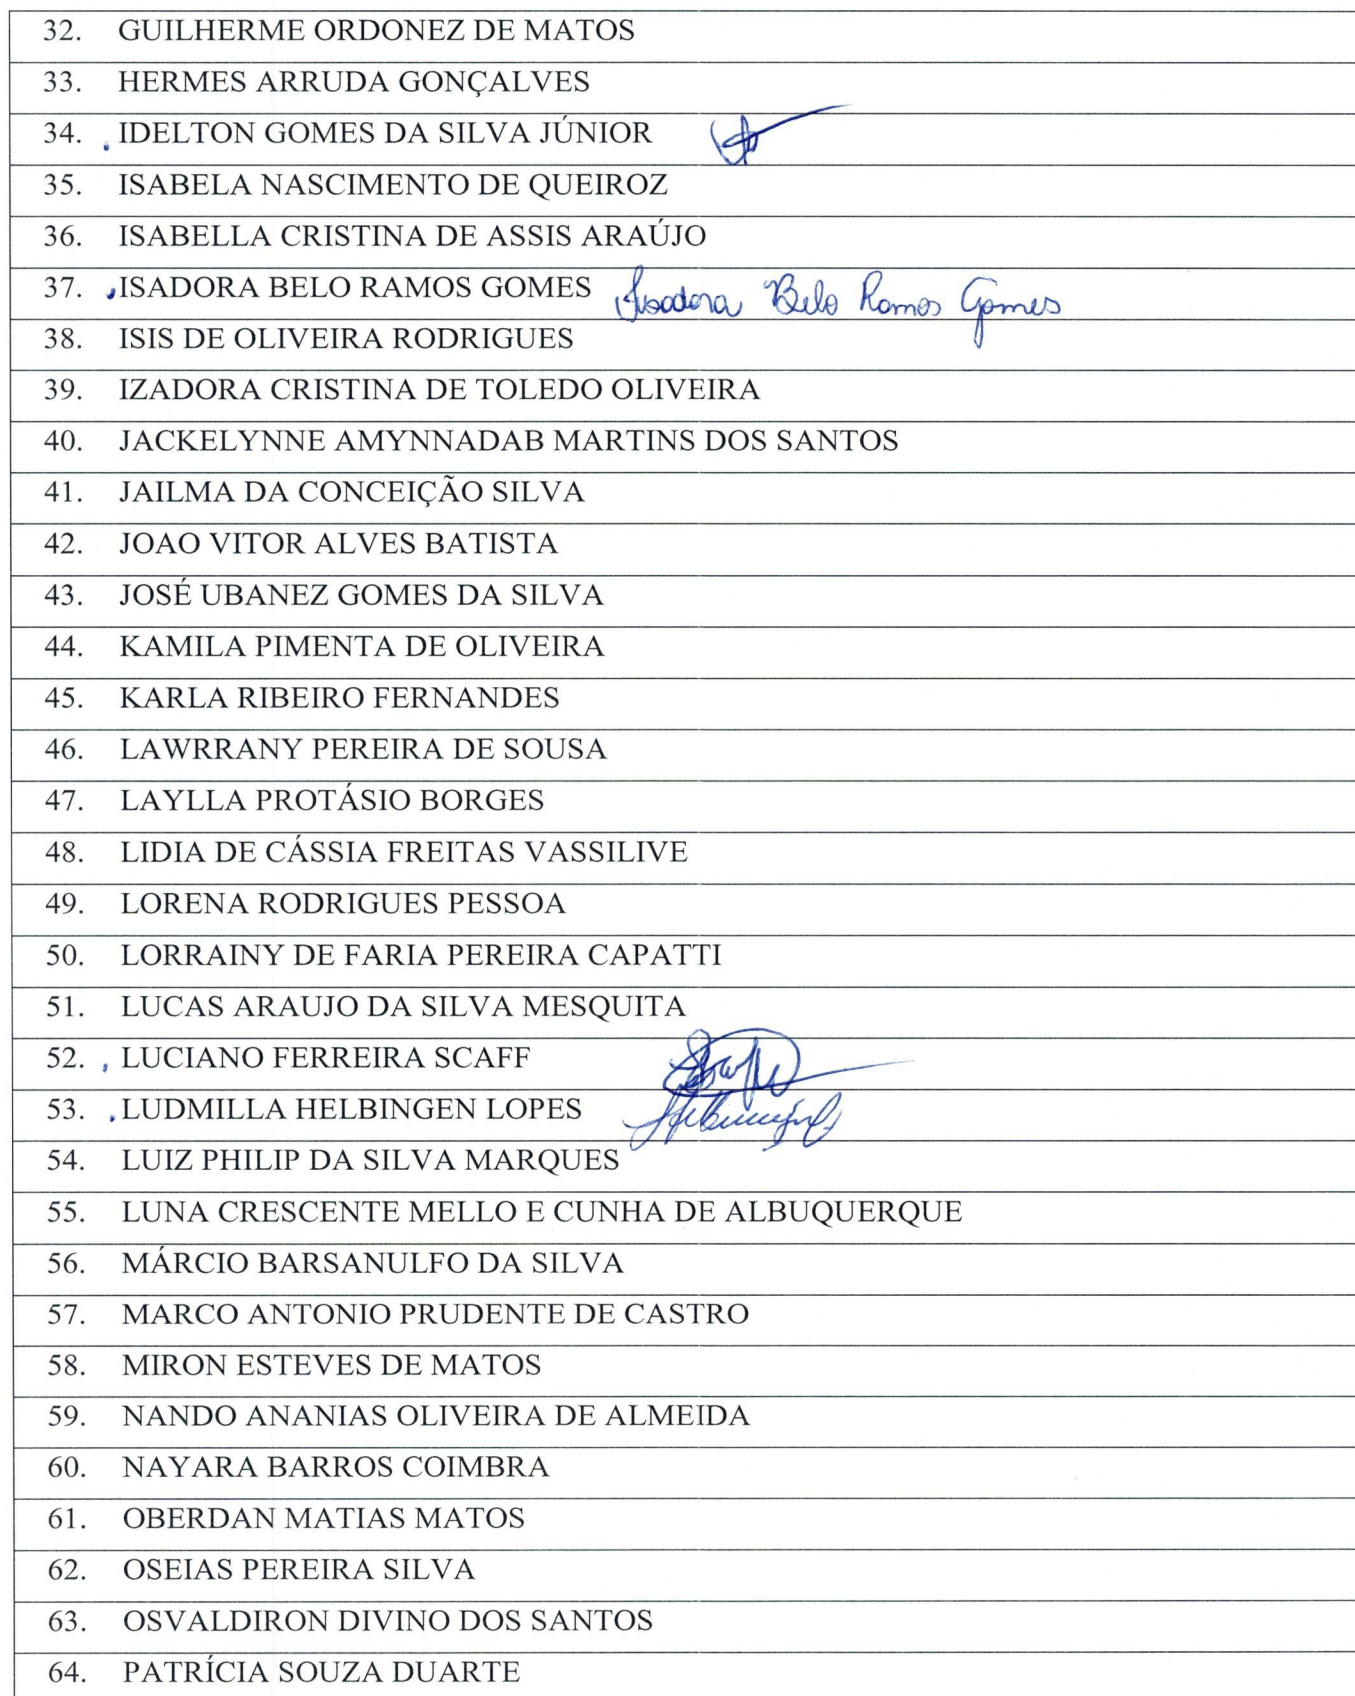 32. GUILHERME ORDONEZ DE MATOS
33. HERMES ARRUDA GONÇALVES
34. IDELTON GOMES DA SILVA JÚNIOR
35. ISABELA NASCIMENTO DE QUEIROZ
36. ISABELLA CRISTINA DE ASSIS ARAÚJO
37. ISADORA BELO RAMOS GOMES Isadora Belo Ramos Gomes
38. ISIS DE OLIVEIRA RODRIGUES
39. IZADORA CRISTINA DE TOLEDO OLIVEIRA
40. JACKELYNNE AMYNNADAB MARTINS DOS SANTOS
41. JAILMA DA CONCEIÇÃO SILVA
42. JOAO VITOR ALVES BATISTA
43. JOSÉ UBANEZ GOMES DA SILVA
44. KAMILA PIMENTA DE OLIVEIRA
45. KARLA RIBEIRO FERNANDES
46. LAWRRANY PEREIRA DE SOUSA
47. LAYLLA PROTÁSIO BORGES
48. LIDIA DE CÁSSIA FREITAS VASSILIVE
49. LORENA RODRIGUES PESSOA
50. LORRAINY DE FARIA PEREIRA CAPATTI
51. LUCAS ARAUJO DA SILVA MESQUITA
52. LUCIANO FERREIRA SCAFF
53. LUDMILLA HELBINGEN LOPES
54. LUIZ PHILIP DA SILVA MARQUES
55. LUNA CRESCENTE MELLO E CUNHA DE ALBUQUERQUE
56. MÁRCIO BARSANULFO DA SILVA
57. MARCO ANTONIO PRUDENTE DE CASTRO
58. MIRON ESTEVES DE MATOS
59. NANDO ANANIAS OLIVEIRA DE ALMEIDA
60. NAYARA BARROS COIMBRA
61. OBERDAN MATIAS MATOS
62. OSEIAS PEREIRA SILVA
63. OSVALDIRON DIVINO DOS SANTOS
64. PATRÍCIA SOUZA DUARTE